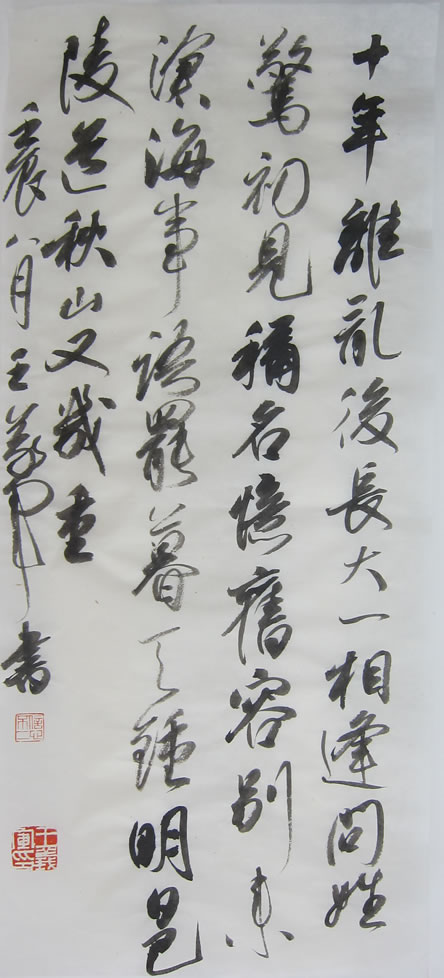 十年離乱後長大一相逢問姓
驚初見稱名憶舊容別来
滄海事語罷暮天鍾明日巴
陵道秋山又幾重
壬辰八月王義軍書
王義軍印